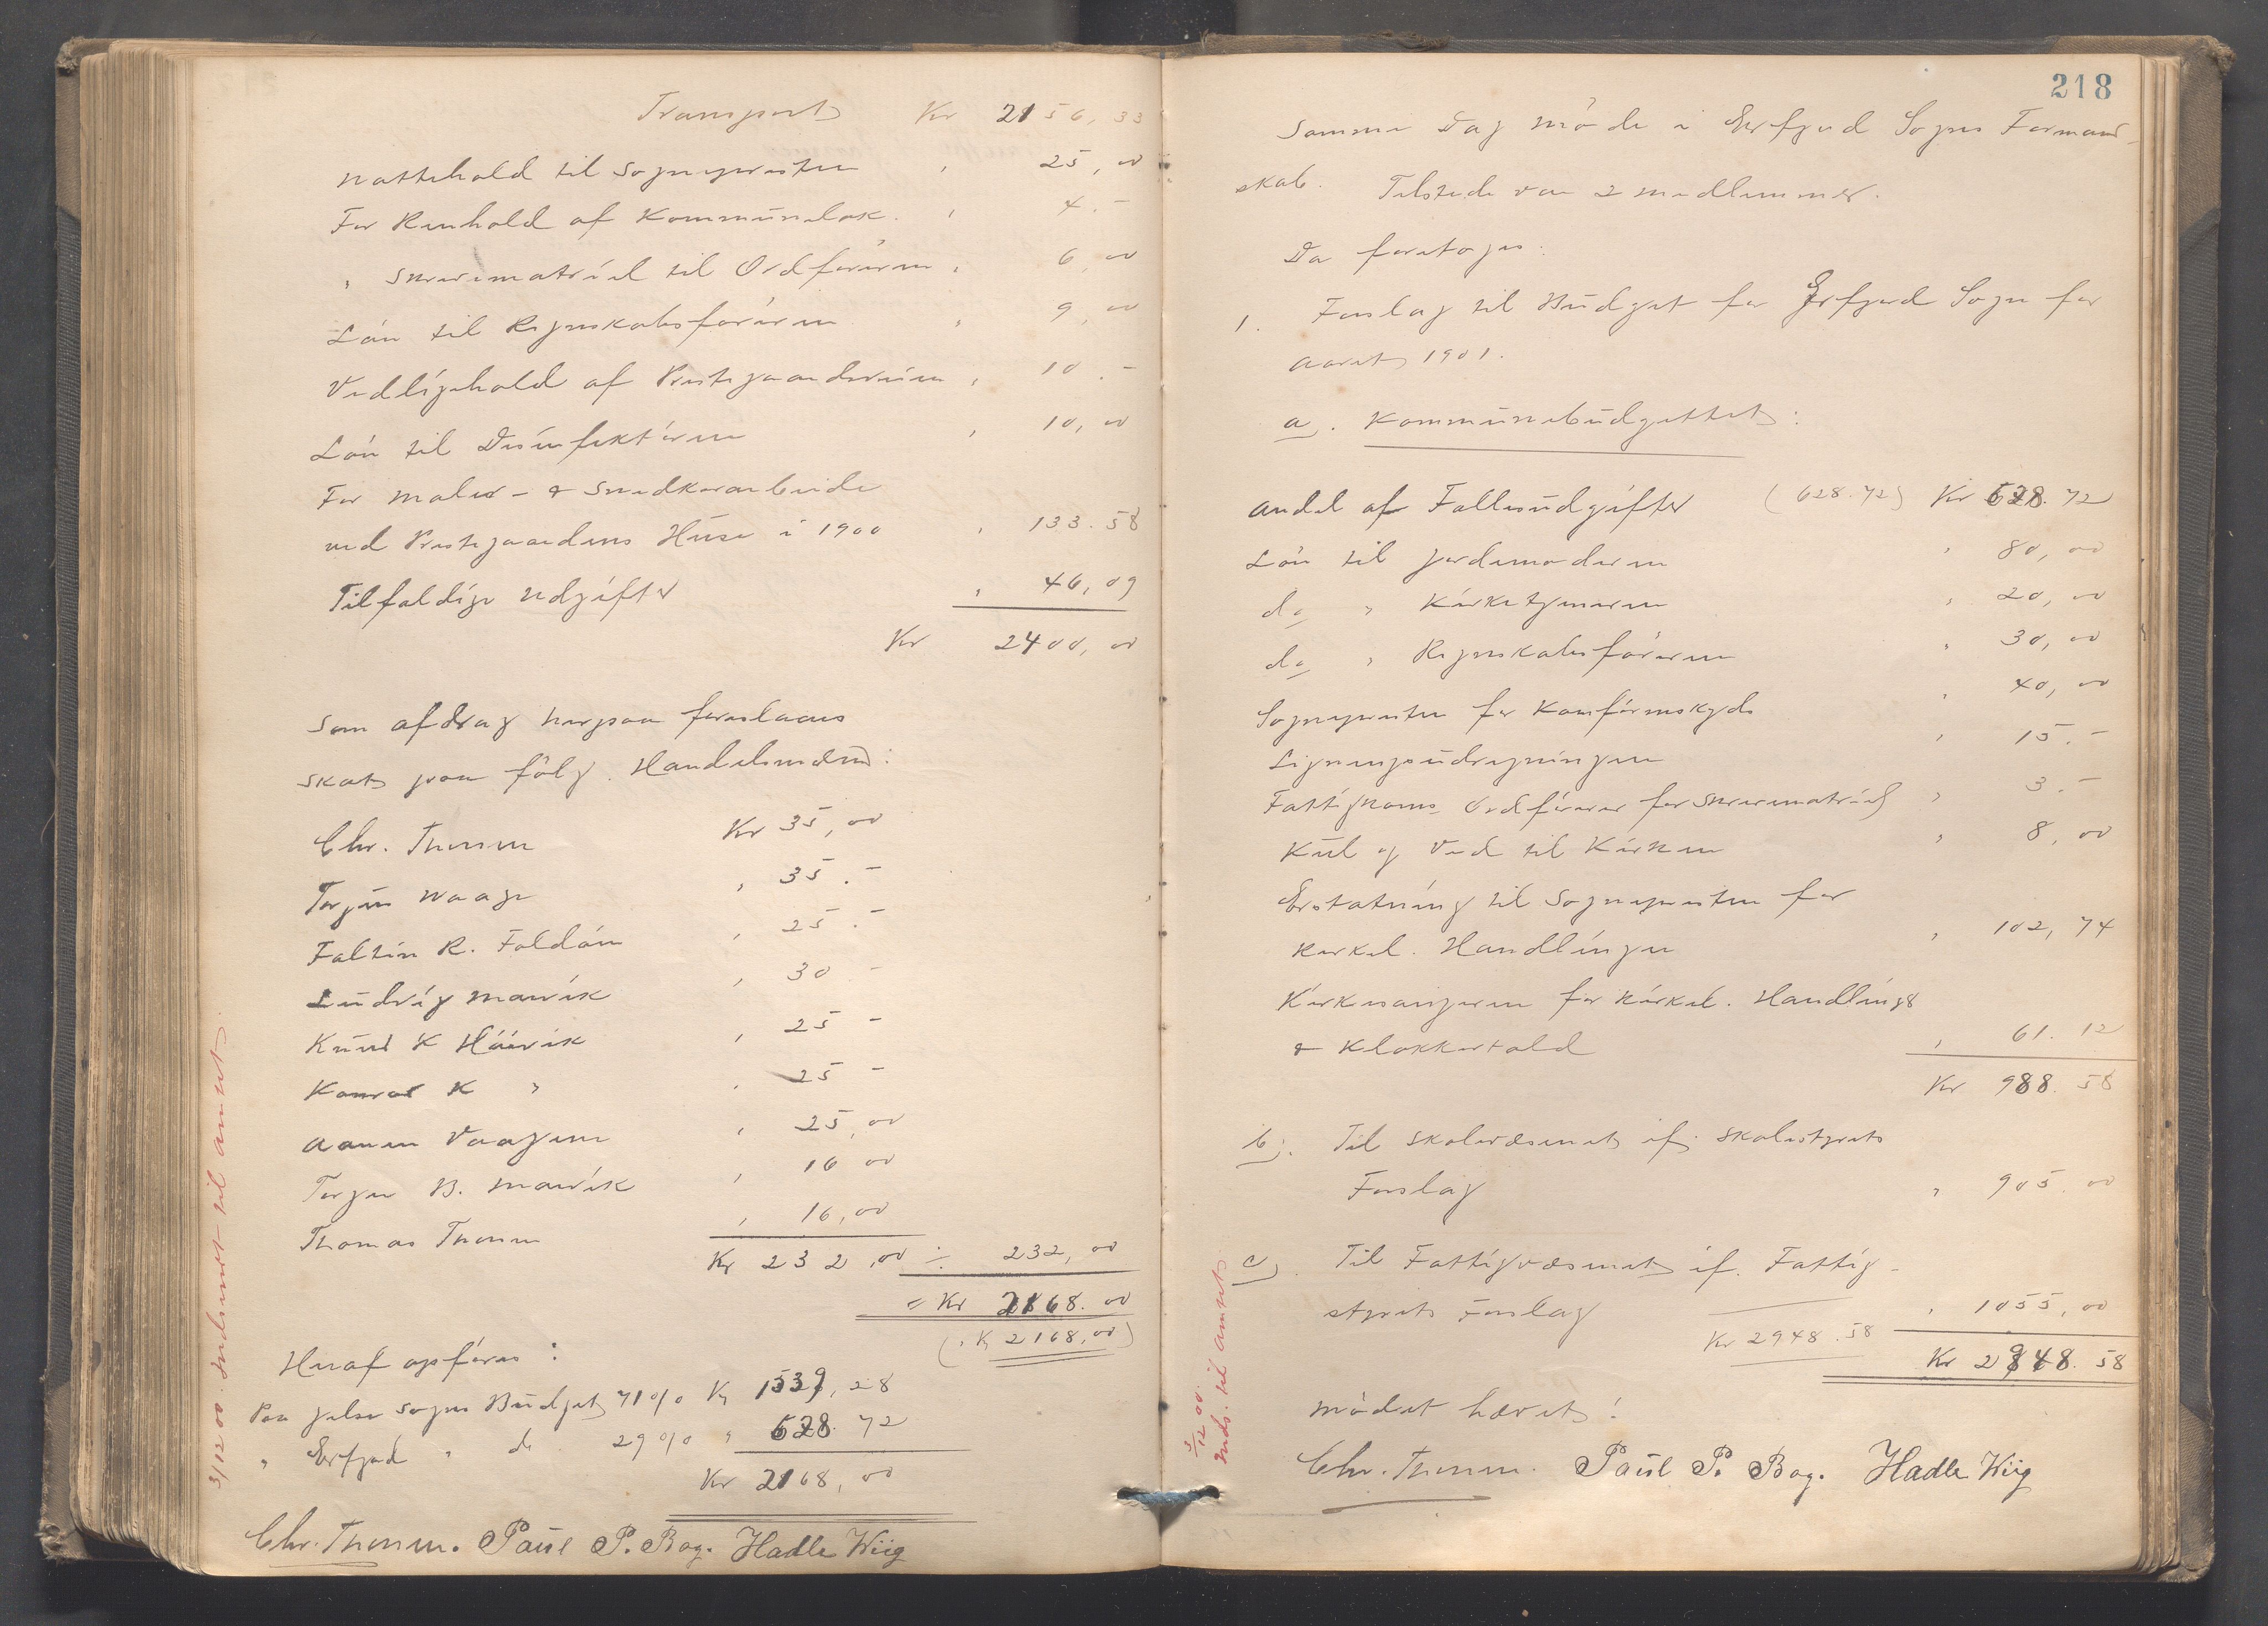 Transport Kr 2156,33
Nattehold til Sognepresten " 25,00
For Renhold af Kommunelok. " 4.-
" Skrivematriel til Ordføreren " 6,00
Løn til Regnskabsføreren " 9,00
Vedligehold af Prestegaardsveien " 10.-
Løn til Desinfektøren " 10,00
For Maler- & Snedkerarbeide
ved Prestegaardens Huse i 1900 " 133.58
Tilfældige Udgifter " 46,09
Kr 2400,00
Som afdrag herpaa foreslaaes
skat paa følg. Handelsmænd:
Chr. Thersen Kr 35,00
Torger Waage " 35.-
Faltin R. Foldøen " 25.-
Ludvig Marvik " 30 -
Knud K Høivik " 25 -
Konrad K " " 25 -
Aanen Vaagene " 25,00
Torger B. Marvik " 16 00
Thomas Thersen " 16,00
Kr 232,00 ÷ 232,00
= Kr 2168.00
(" Kr 2168,00)
Heraf opføres:
Paa Jelse Sogns Budget 71 % Kr 1539,28
" Erfjord " do 29 % " 628.72
Kr 2168,00
Chr. Thersen. Paul P. Bog. Hadle Wiig
3/12 00. Indsendt til amtet.
218
Samme Dag møde i Erfjord Sogns Formand-
skab. Tilstede var 2 medlemmer.
Da foretoges:
1. Forslag til Budget for Erfjord Sogn for
Aaret 1901.
a). Kommunebudgettet:
Andel af Fællesudgifter (628.72) Kr 628.72
Løn til Jordemoderen " 80,00
do " Kirketjeneren " 20,00
do " Regnskabsføreren " 30,00
Sognepresten for Konfirmskyds " 40,00
Ligningsudregningen " 15.-
Fattigkoms. Ordfører for Skrivematriel " 3.-
Kul og Ved til Kirken " 8,00
Erstatning til Sognepresten for
kirkel. Handlinger " 102,74
Kirkesangeren for kirkel. Handlingr
& Klokkertold " 61.12
Kr 988.58
b). Til Skolevæsenet if. Skolestyrets
Forslag " 905.00
c). Til Fattigvæsenet if. Fattig-
styrets Forslag " 1055,00
Kr 2948.58 Kr 2948.58
Mødet hævet!
Chr. Thersen. Paul P. Bog. Hadle Wiig
3/12 00.
Inds. til amtet.